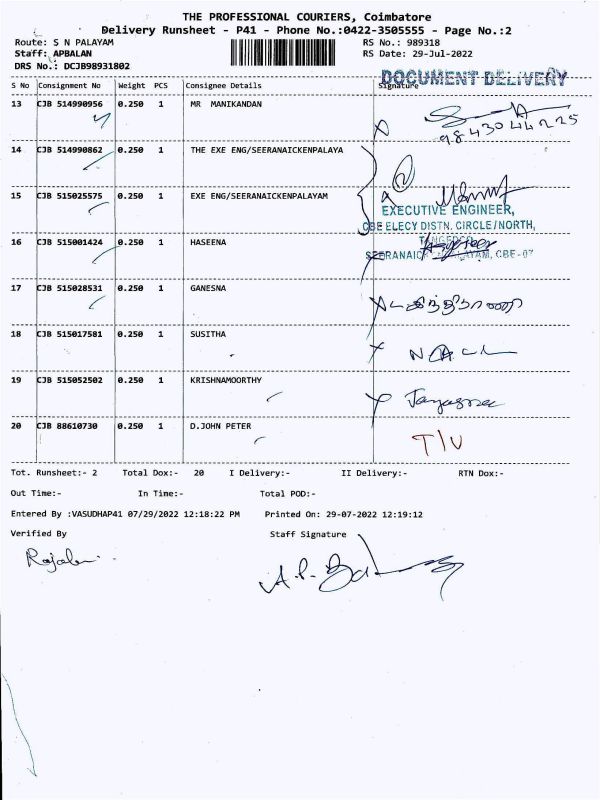 THE PROFESSIONAL COURIERS, Coimbatore
Delivery Runsheet - P41 - Phone No.:0422-3505555 - Page No.:2
Route: S N PALAYAM RS No.: 989318
Staff: APBALAN RS Date: 29-Jul-2022
DRS No.: DCJB98931802
DOCUMENT DELIVERY
S No Consignment No Weight PCS Consignee Details Signature
13 CJB 514990956 0.250 1 MR MANIKANDAN
9843044225
14 CJB 514990862 0.250 1 THE EXE ENG/SEERANAICKENPALAYA
15 CJB 515025575 0.250 1 EXE ENG/SEERANAICKENPALAYAM
EXECUTIVE ENGINEER,
CBE ELECY DISTN. CIRCLE/NORTH,
16 CJB 515001424 0.250 1 HASEENA
CBE-07
17 CJB 515028531 0.250 1 GANESNA
18 CJB 515017581 0.250 1 SUSITHA
19 CJB 515052502 0.250 1 KRISHNAMOORTHY
20 CJB 88610730 0.250 1 D.JOHN PETER
Tot. Runsheet:- 2 Total Dox:- 20 I Delivery:- II Delivery:- RTN Dox:-
Out Time:- In Time:- Total POD:-
Entered By :VASUDHAP41 07/29/2022 12:18:22 PM Printed On: 29-07-2022 12:19:12
Verified By Staff Signature